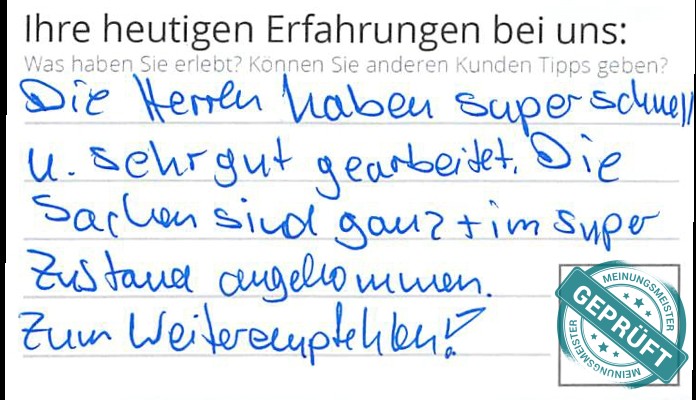 Ihre heutigen Erfahrungen bei uns:
Was haben Sie erlebt? Können Sie anderen Kunden Tipps geben?
Die Herren haben super schnell
u. sehr gut gearbeitet. Die
Sachen sind ganz + im super
Zustand angekommen.
Zum Weiterempfehlen!
MEINUNGSMEISTER
GEPRÜFT
MEINUNGSMEISTER
MEINUNGSMEISTER